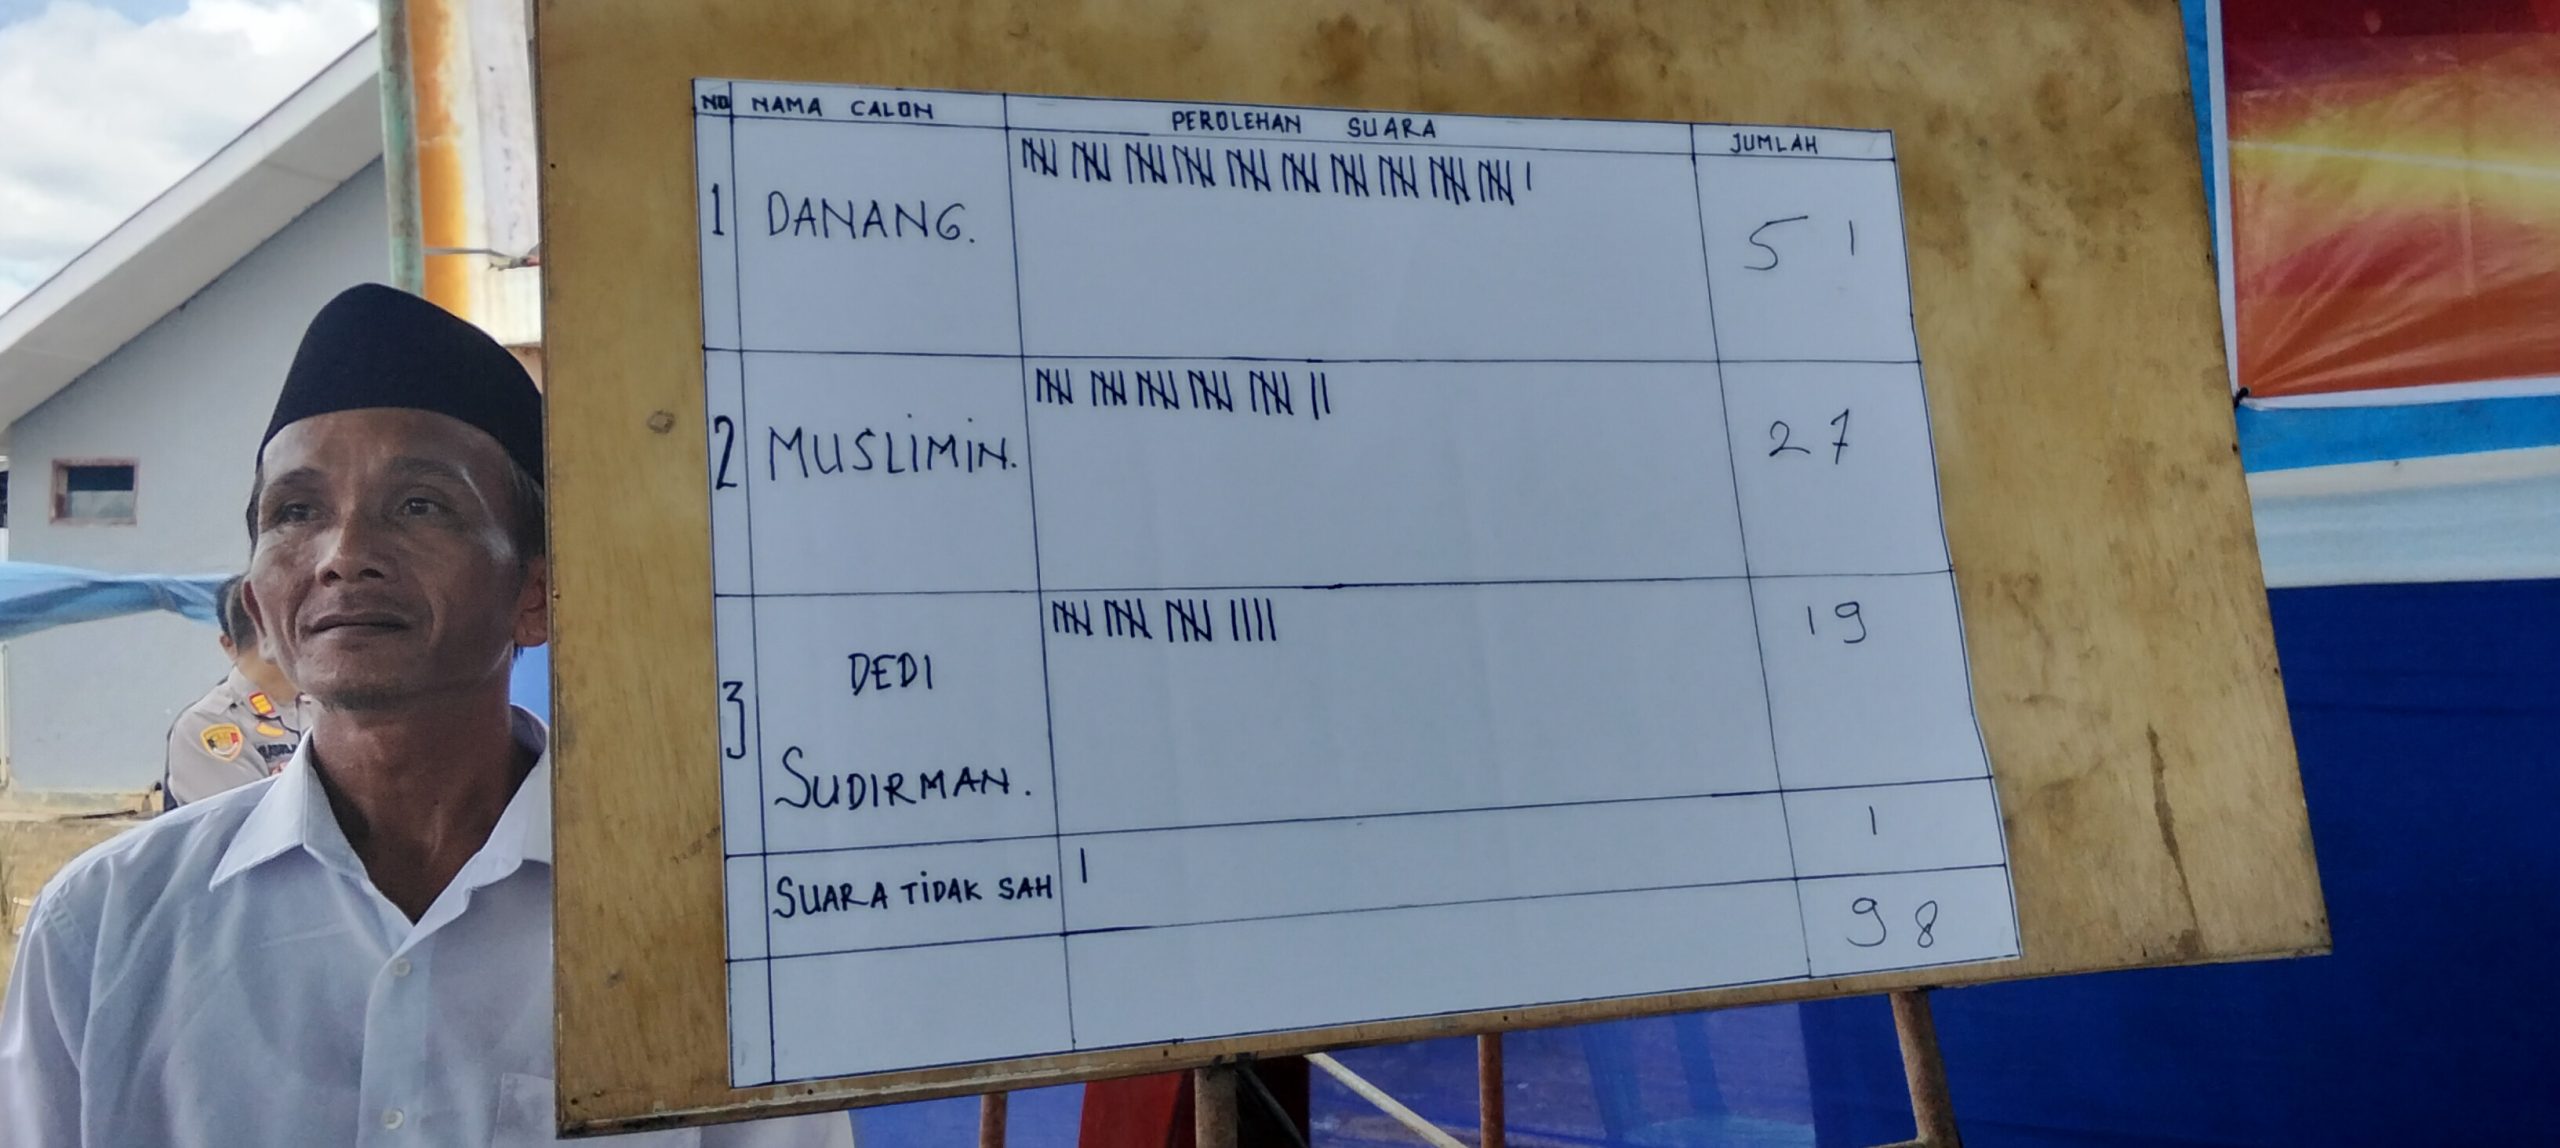 NO NAMA CALON PEROLEHAN SUARA JUMLAH
1 DANANG. 51
2 MUSLIMIN. 27
3 DEDI SUDIRMAN. 19
SUARA TIDAK SAH 1
98